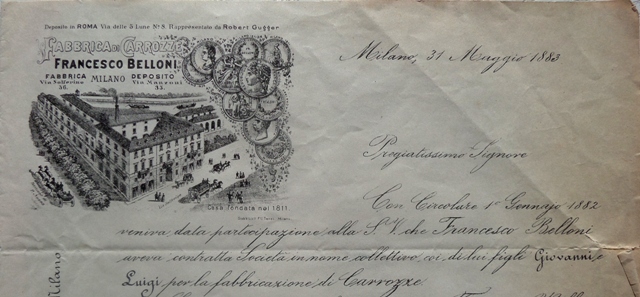 Deposito in ROMA Via delle 3 Lune No 8. Rappresentato da Robert Gugger
FABBRICA DI CARROZZE
FRANCESCO BELLONI
FABBRICA MILANO DEPOSITO
Via Solferino Via Manzoni
36. 33.
Casa fondata nel 1811.
Milano, 31 Maggio 1883
Pregiatissimo Signore
Con Circolare 1o Gennajo 1882
veniva data partecipazione alla S. V. che Francesco Belloni
aveva contratta Società in nome collettivo coi di lui figli Giovanni e
Luigi per la fabbricazione di Carrozze.
Milano